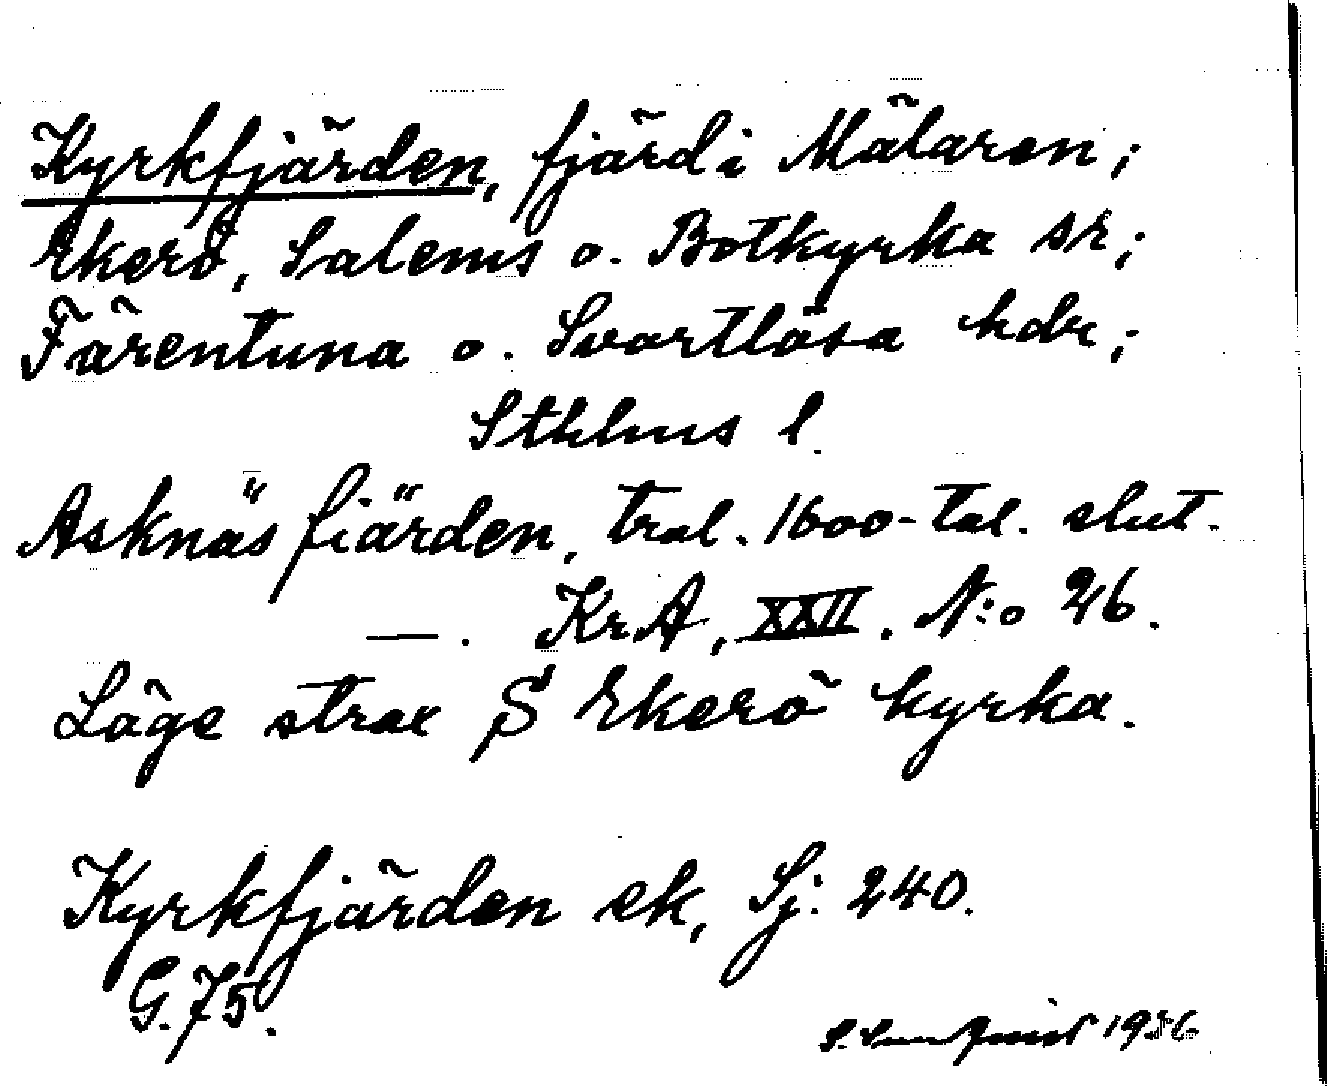 Kyrkfjärden, fjärd i Mälaren;
Ekerö, Salems o. Botkyrka sr;
Färentuna o. Svartlösa hdr;
Sthlms l.
Asknäs fiärden, tral. 1600-tal. slut.
—. KrA, XXII. N:o 26.
Läge strax S Ekerö kyrka.
Kyrkfjärden ek, Sj: 240.
G. 75.
1936